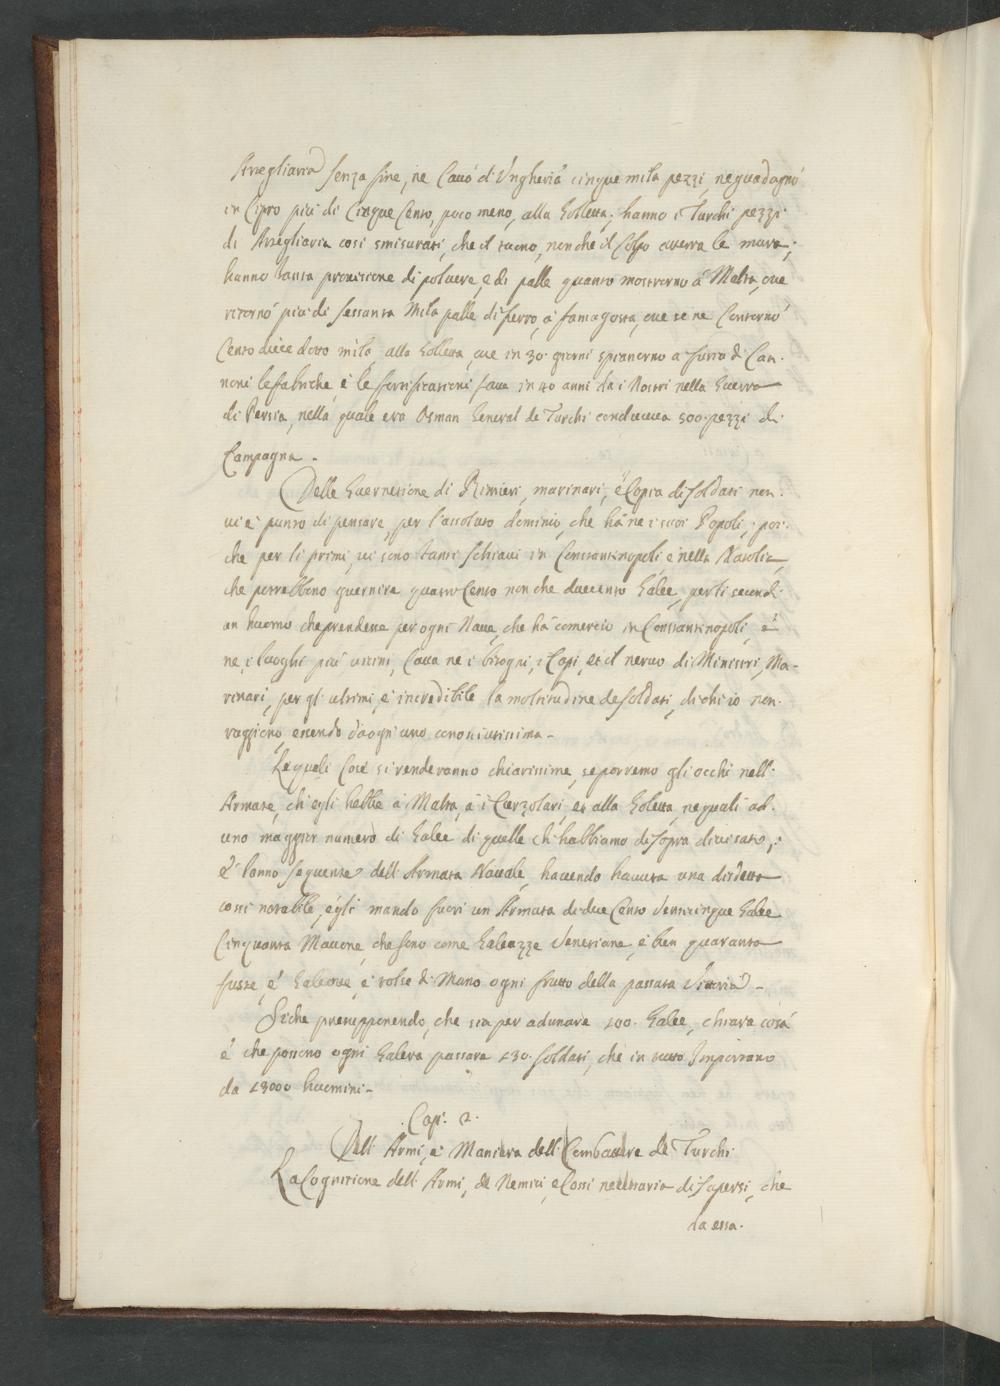 Artegliaria senza fine, ne Cauò di Vngheria cinque mila pezzi, ne guadagnò
in Cipro più di Cinque Cento, poco meno, alla Golletta; hanno i Turchi pezzi
di Artegliaria così smisurati, che il tuono, non che il Colpo atterra le mura;
hanno tanta prouisione di poluere, e di palle quanto mostrorno à Malta, oue
tirorno più di sessanta Mila palle di ferro, à famagosta, oue se ne Contorno
Cento diece dotto mila, alla Golletta, oue in 30. giorni spianorno a furia di Can-
noni le fabriche, è le fortificationi fatte in 40 anni da i Nostri nella Guerra
di Persia, nella quale era Osman General de Turchi conduceua 500. pezzi di
Campagna.
Delle Guernitione di Rimieri, marinari, è Copia di soldati non
ui è punto di pensare, per l'assoluto dominio, che hà ne i suoi Popoli, poi-
che per li primi, ui sono tanti schiaui in Constantinopoli, e nella Natolia,
che potrebbono guernire quatro Cento non che duecento Galee, per li secondi
un huomo che prendeua per ogni Naue, che hà comercio in Constantinopoli, è
ne i luoghi più uicini, Caua ne i bisogni, i Capi, et il neruo di Ministri, Ma-
rinari, per gl'ultimi, è incredibile la moltitudine de soldati, di chi io non
raggiono, essendo d'a ogni uno conosciutissima.
Le quali Cose si renderanno chiarissime, se porremo gli occhi nell'
Armate, ch'egli hebbe à Malta, à i Curzolari, et alla Goletta, ne quali ad-
uno maggior numero di Galee di quelle ch'habbiamo di sopra diuisato;
È l'anno sequente dell'Armata Nauale, hauendo hauuta una disdetta
così notabile, egli mandò fuori un Armata di due Cento Venticinque Galee
Cinquanta Maone, che sono come Galeazze Venetiane, è ben quaranta
fuste, è Galeotte, è tolse di Mano ogni frutto della passata Vittoria.
Siche presupponendo, che sia per adunare 200. Galee, chiara cosa
è che possono ogni Galera passare 130. soldati, che in tutto Importano
da 43000 huomini.
Cap. 2.
Dell'Armi, è Maniera dell'Combattere de Turchi
La Cognitione dell'Armi, de Nemici, è Così necessaria di sapersi, che
da essa.